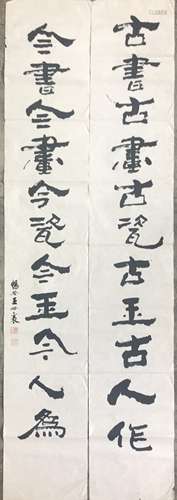 古書古畫古瓷古玉古人作
今書今畫今瓷今玉今人為